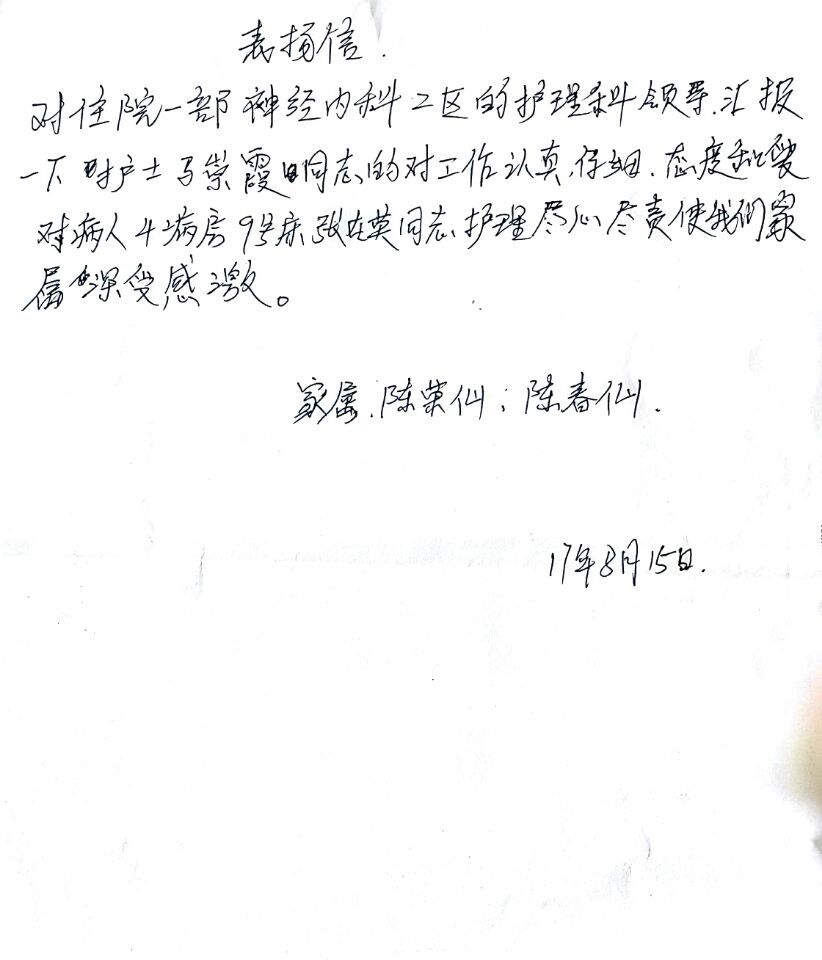 表扬信.
对住院一部神经内科二区的护理科领导.汇报
一下 对护士马崇霞同志的对工作认真.仔细.态度和
对病人4病房9号床张在英同志.护理尽心尽责使我们家
属深受感激。
家属.陈荣仙;陈春仙.
17年8月15日.